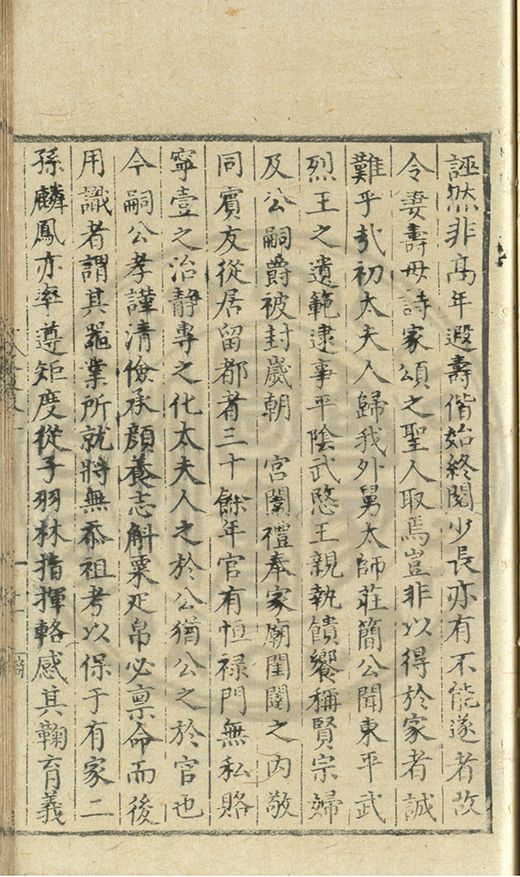 誣然非高年遐壽偕始終閱少長亦有不能遂者故
令妻壽母詩家頌之聖人取焉豈非以得於家者誠
難乎哉初太夫人歸我外舅太師莊簡公聞東平武
烈王之遺範逮事平陰武愍王親執饋饗稱賢宗婦
及公嗣爵被封歲朝　宮闈禮奉家廟閨闥之内敬
同賓友從居留都者三十餘年官有恒禄門無私賂
寧壹之治靜專之化太夫人之於公猶公之於官也
今嗣公孝謹清儉承顔養志斛粟疋帛必禀命而後
用識者謂其噐業所就將無忝祖考以保于有家二
孫麟鳳亦率遵矩度從子羽林指揮輅感其鞠育義